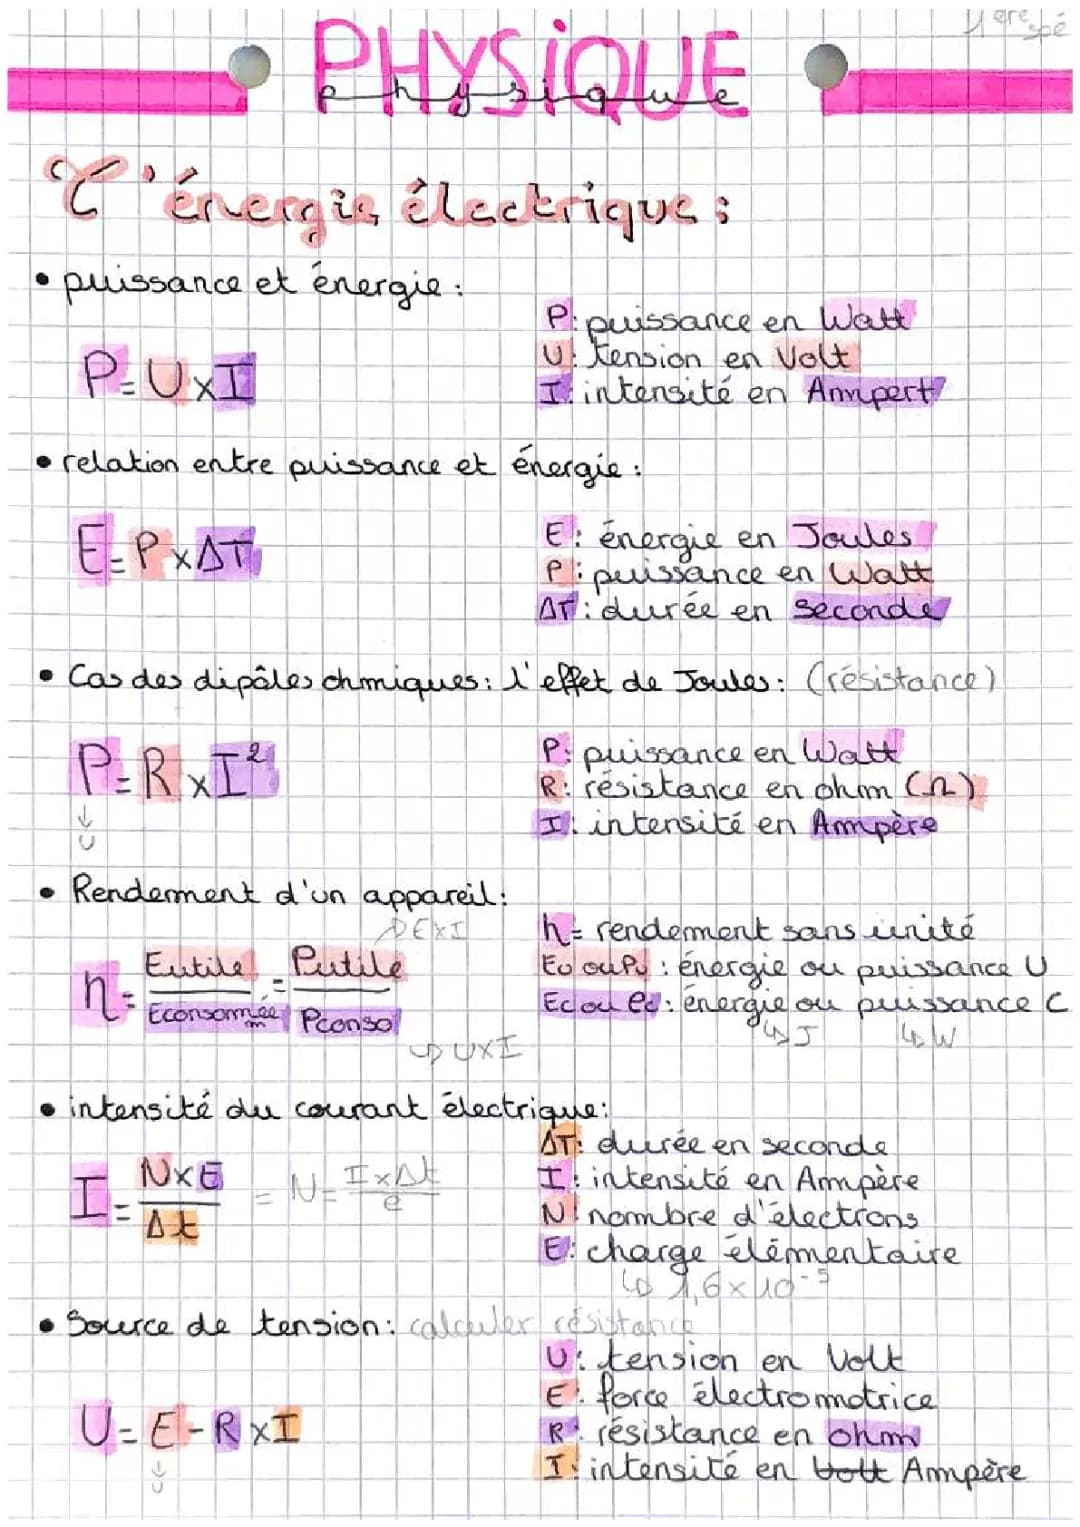 1ère spé
PHYSIQUE
physique
L'énergie électrique :
• puissance et énergie :
P = U x I
P : puissance en Watt
U : tension en Volt
I : intensité en Ampert
• relation entre puissance et énergie :
E = P x ΔT
E : énergie en Joules
P : puissance en Watt
ΔT : durée en seconde
• Cas des dipâles ohmiques : l'effet de Joules : (résistance)
P = R x I²
P : puissance en Watt
R : résistance en ohm (Ω)
I : intensité en Ampère
• Rendement d'un appareil :
↳ E x I
n = Eutile / Econsommée = Putile / Pconso
↳ U x I
n = rendement sans unité
Eu ou Pu : énergie ou puissance U
Ec ou Pc : énergie ou puissance C
↳ J ↳ W
• intensité du courant électrique :
I = N x E / Δt = N = I x Δt / e
ΔT : durée en seconde
I : intensité en Ampère
N : nombre d'électrons
E : charge élémentaire
↳ 1,6 x 10⁻⁵
• Source de tension : calculer résistance
U = E - R x I
U : tension en Volt
E : force électromotrice
R : résistance en ohm
I : intensité en Volt Ampère